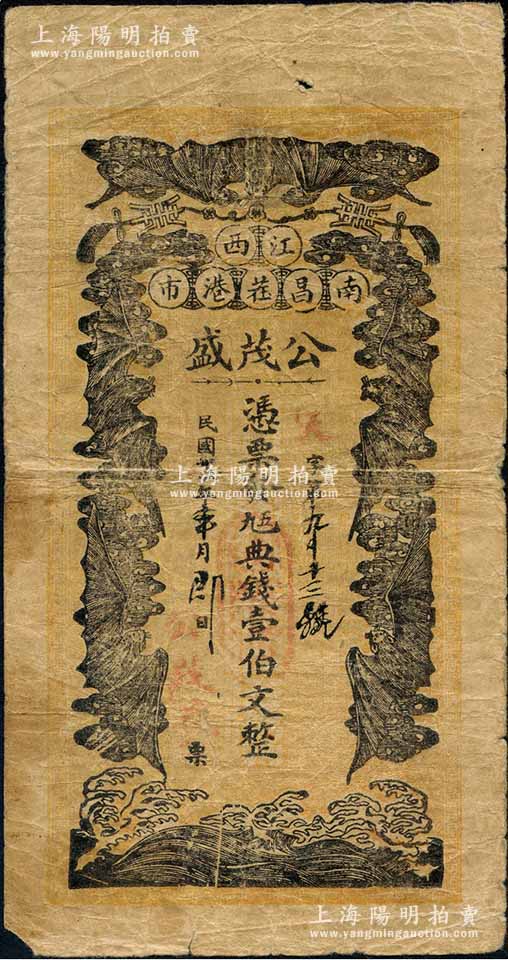 上海陽明拍賣
www.yangmingauction.com
江西
南昌荘港市
公茂盛
字第九百廿二號
憑票九典錢壹伯文整
民國 年 月 日
票
上海陽明拍賣
www.yangmingauction.com
上海陽明拍賣
www.yangmingauction.com